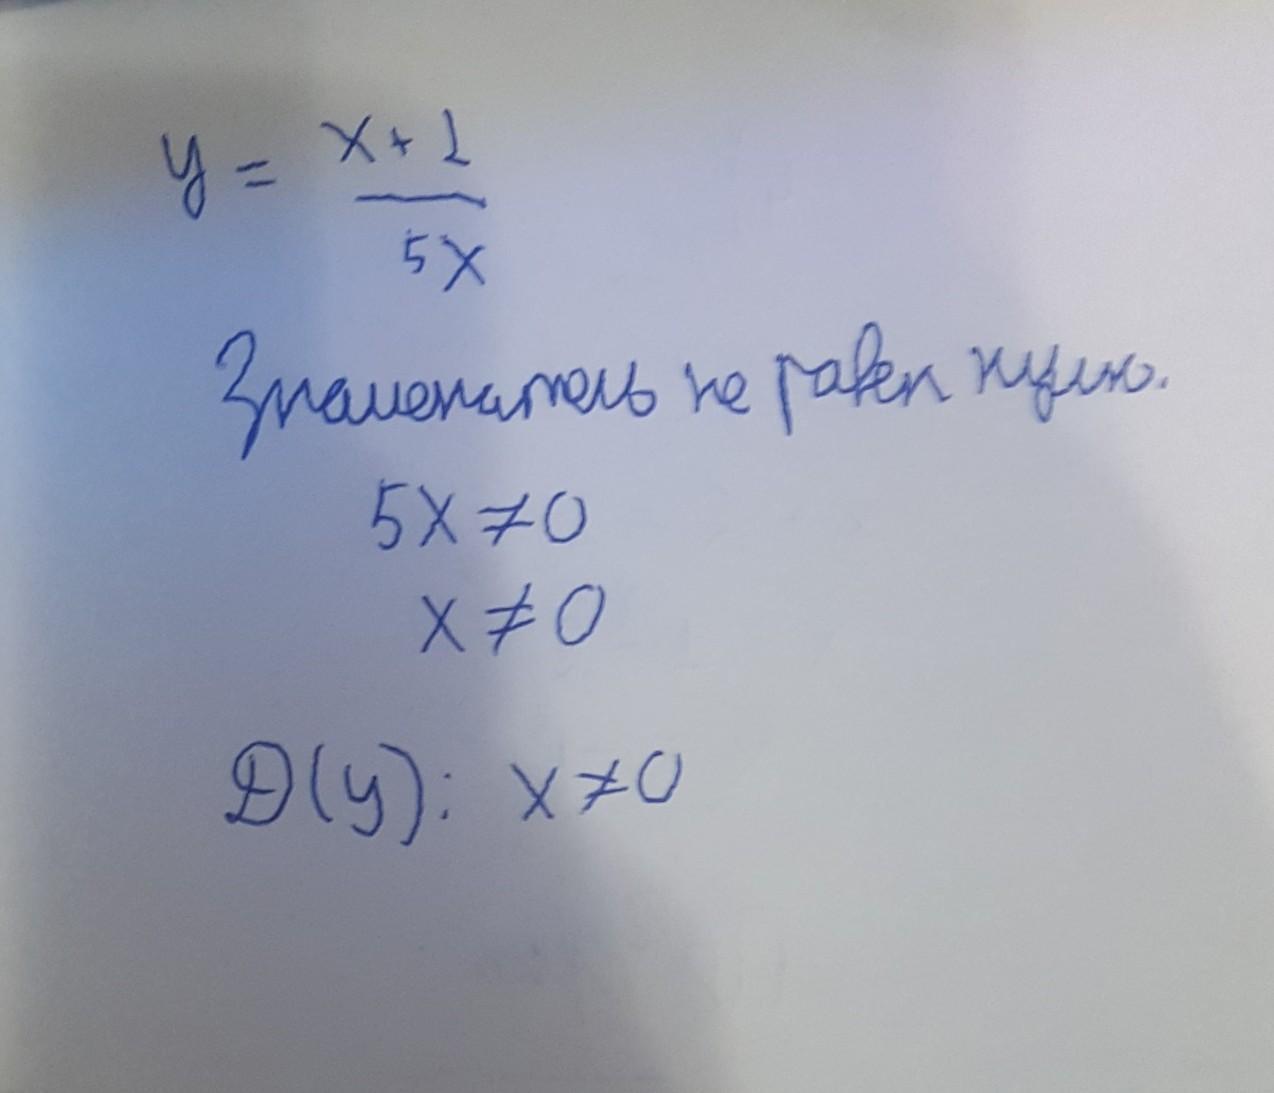 y = x+1
5x
Знаменатель не равен нулю.
5x ≠ 0
x ≠ 0
D(y): x ≠ 0